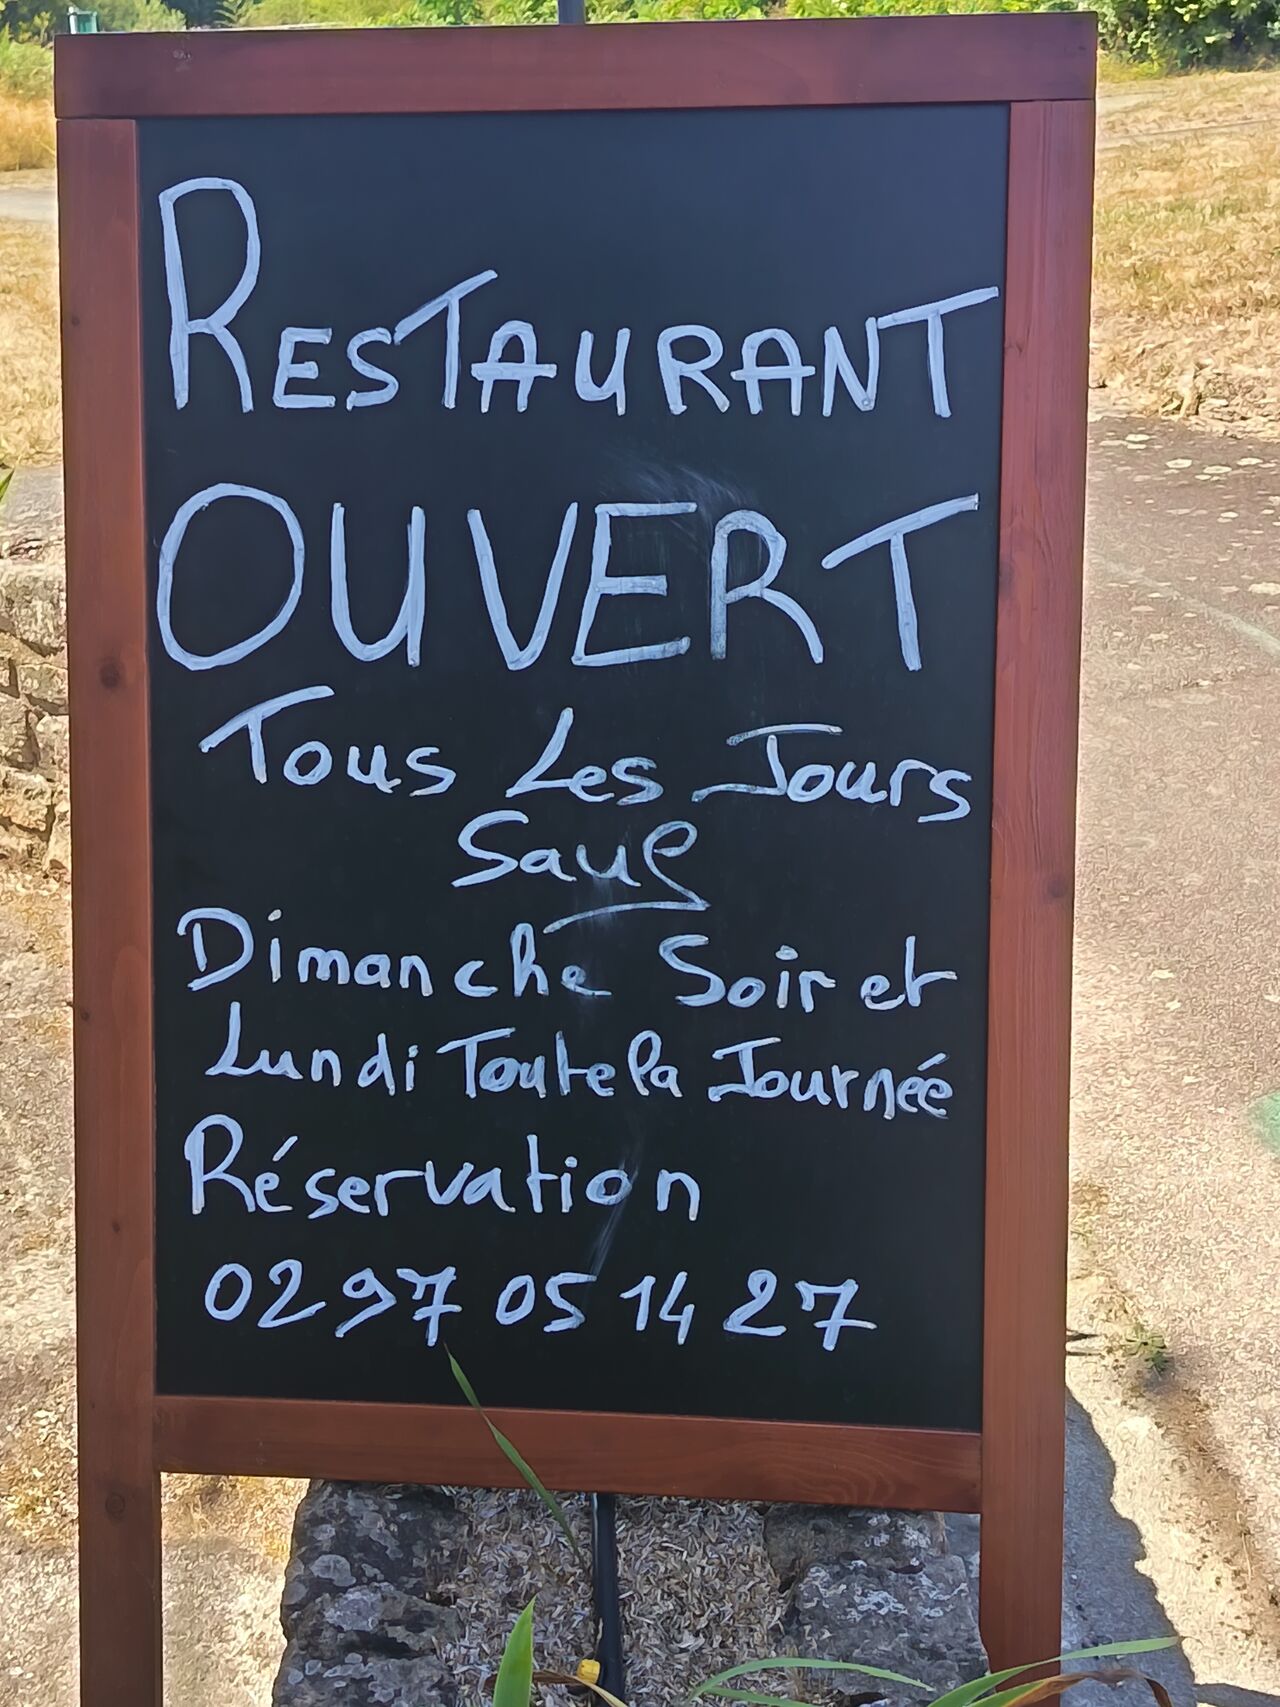 RESTAURANT
OUVERT
Tous Les Jours
Sauf
Dimanche Soir et
Lundi Toute la Journée
Réservation
02 97 05 14 27